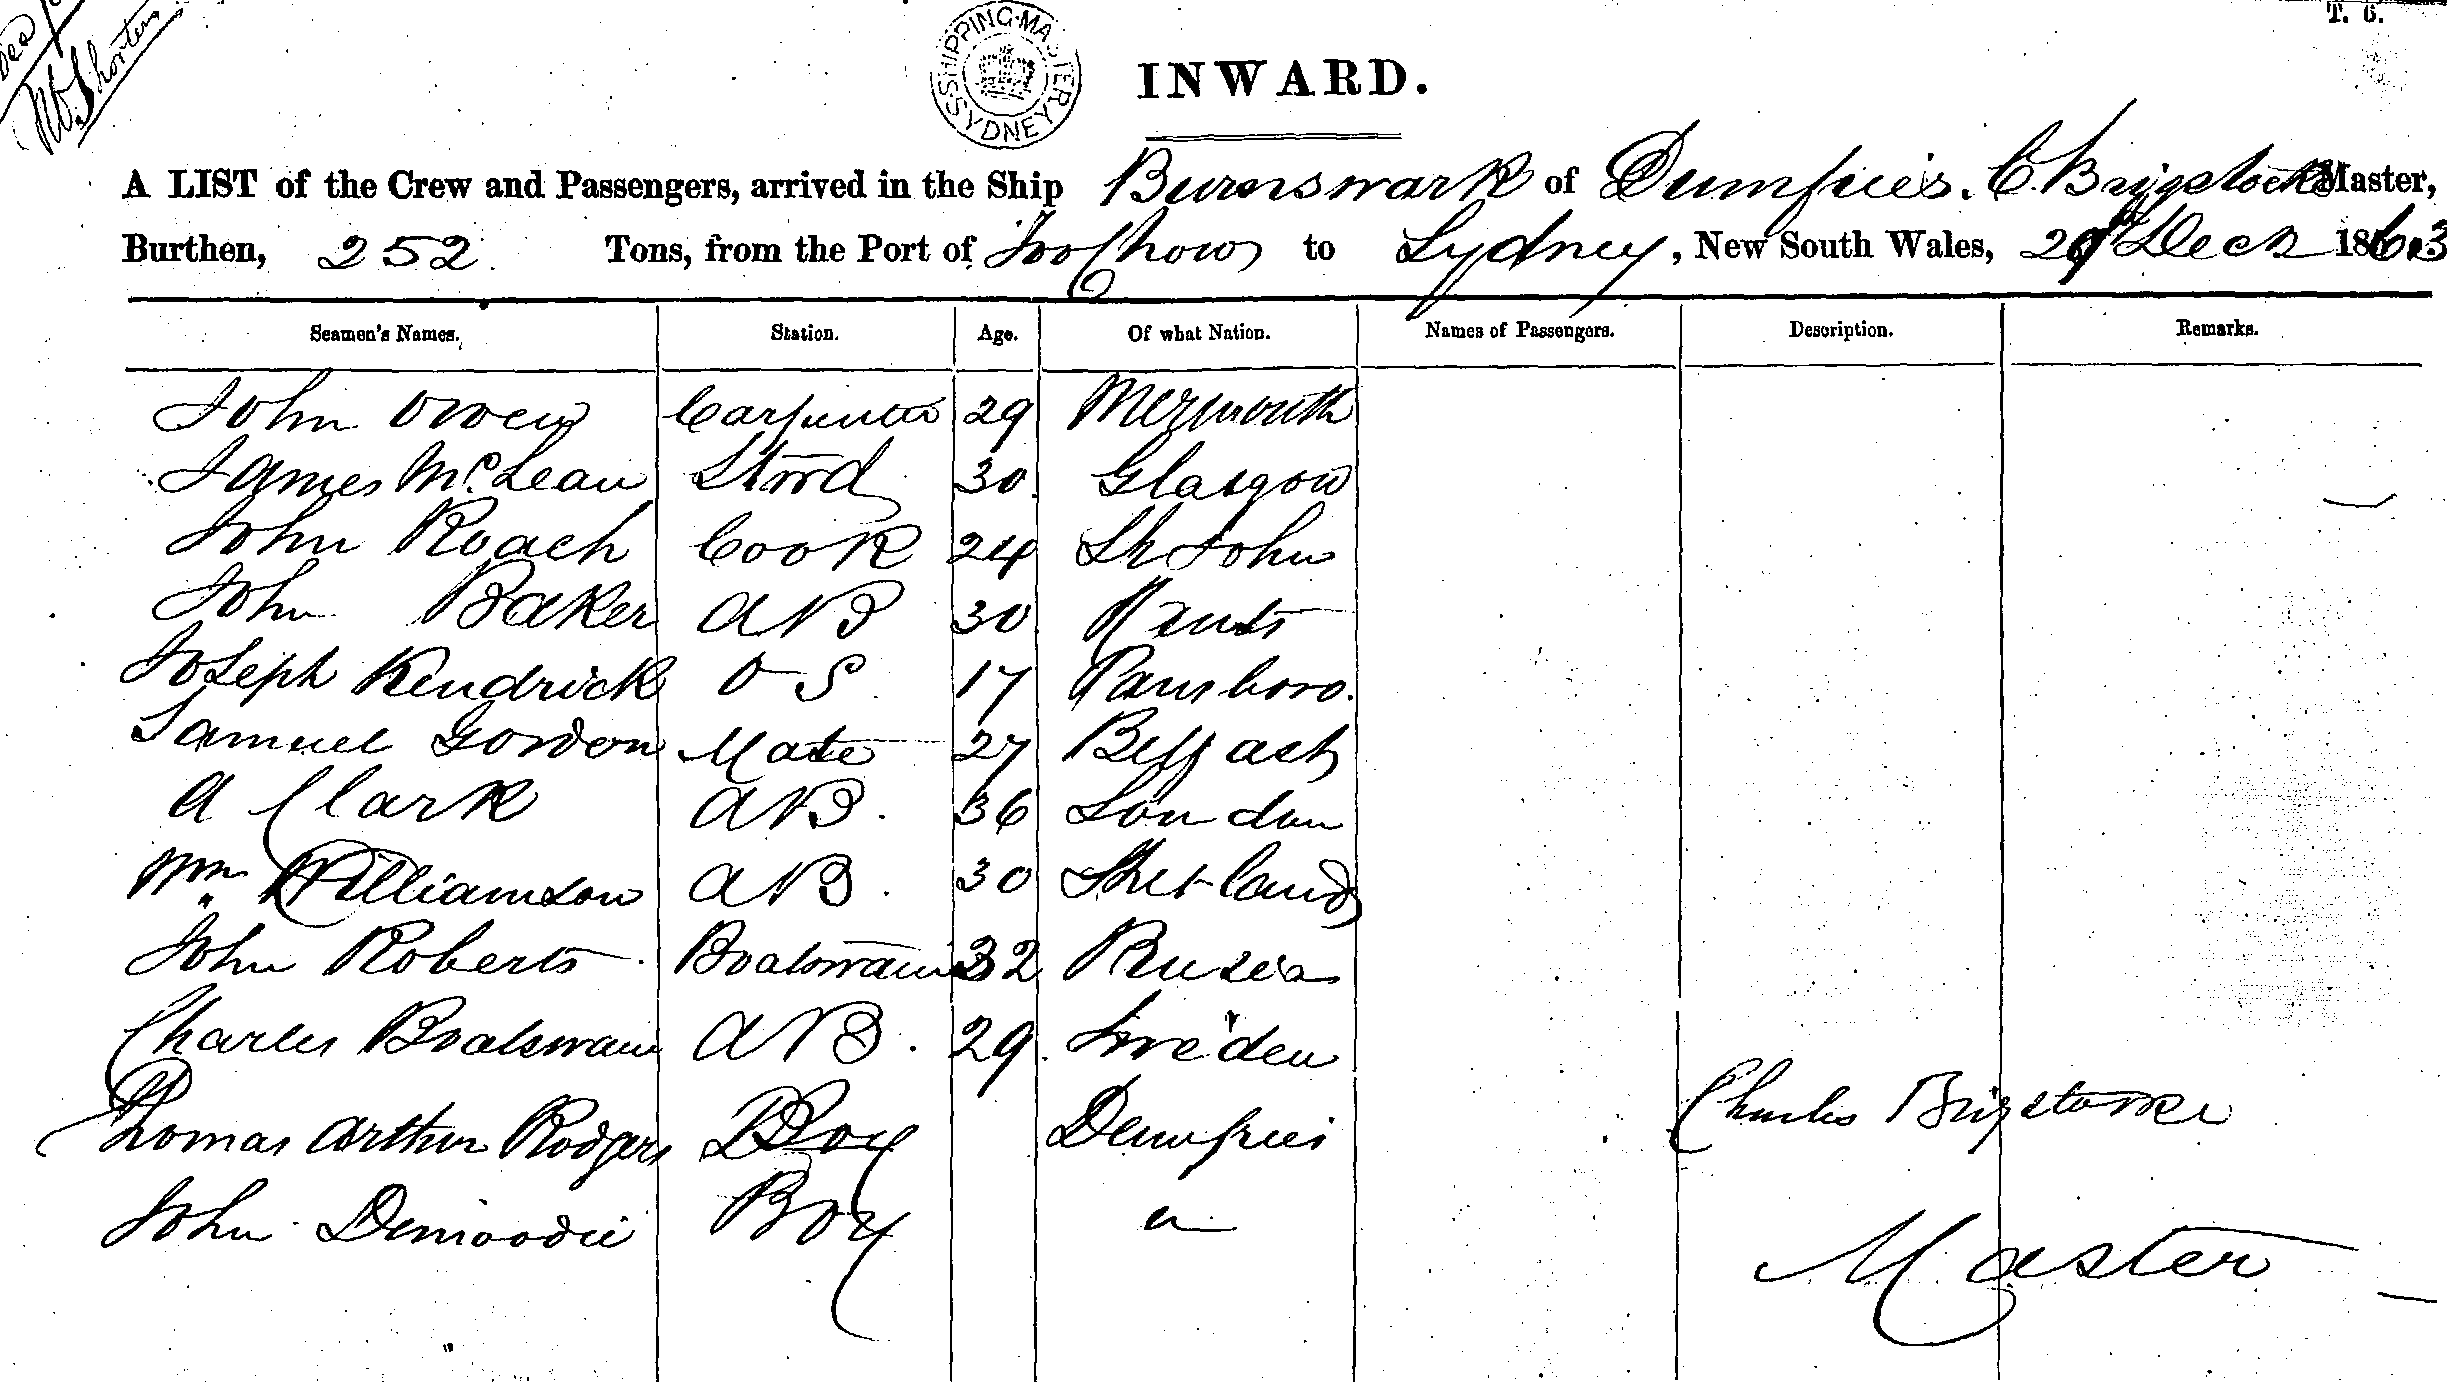 T. 6.
SHIPPING MASTER'S SYDNEY
INWARD.
A LIST of the Crew and Passengers, arrived in the Ship Burnswark of Dumfries. C. Brigstocke Master,
Burthen, 252 Tons, from the Port of Foo Chow to Sydney, New South Wales, 29 Decr 1863
Seamen's Names. Station. Age. Of what Nation. Names of Passengers. Description. Remarks.
John Owen Carpenter 29
James McLean Stwrd 30 Glasgow
John Roach Cook 24 St John
John Baker AB 30
Joseph Kendrick O S 17 Parrsboro.
Samuel Gordon Mate 27 Belfast
A Clark AB. 36 London
Wm Williamson AB. 30 Shetland
John Roberts Boatswain 32 Rusia
Charles Boatswain AB. 29. Sweden
Thomas Arthur Rodgers Boy Dumfries
Charles Brigstocke
John Boy "
Master